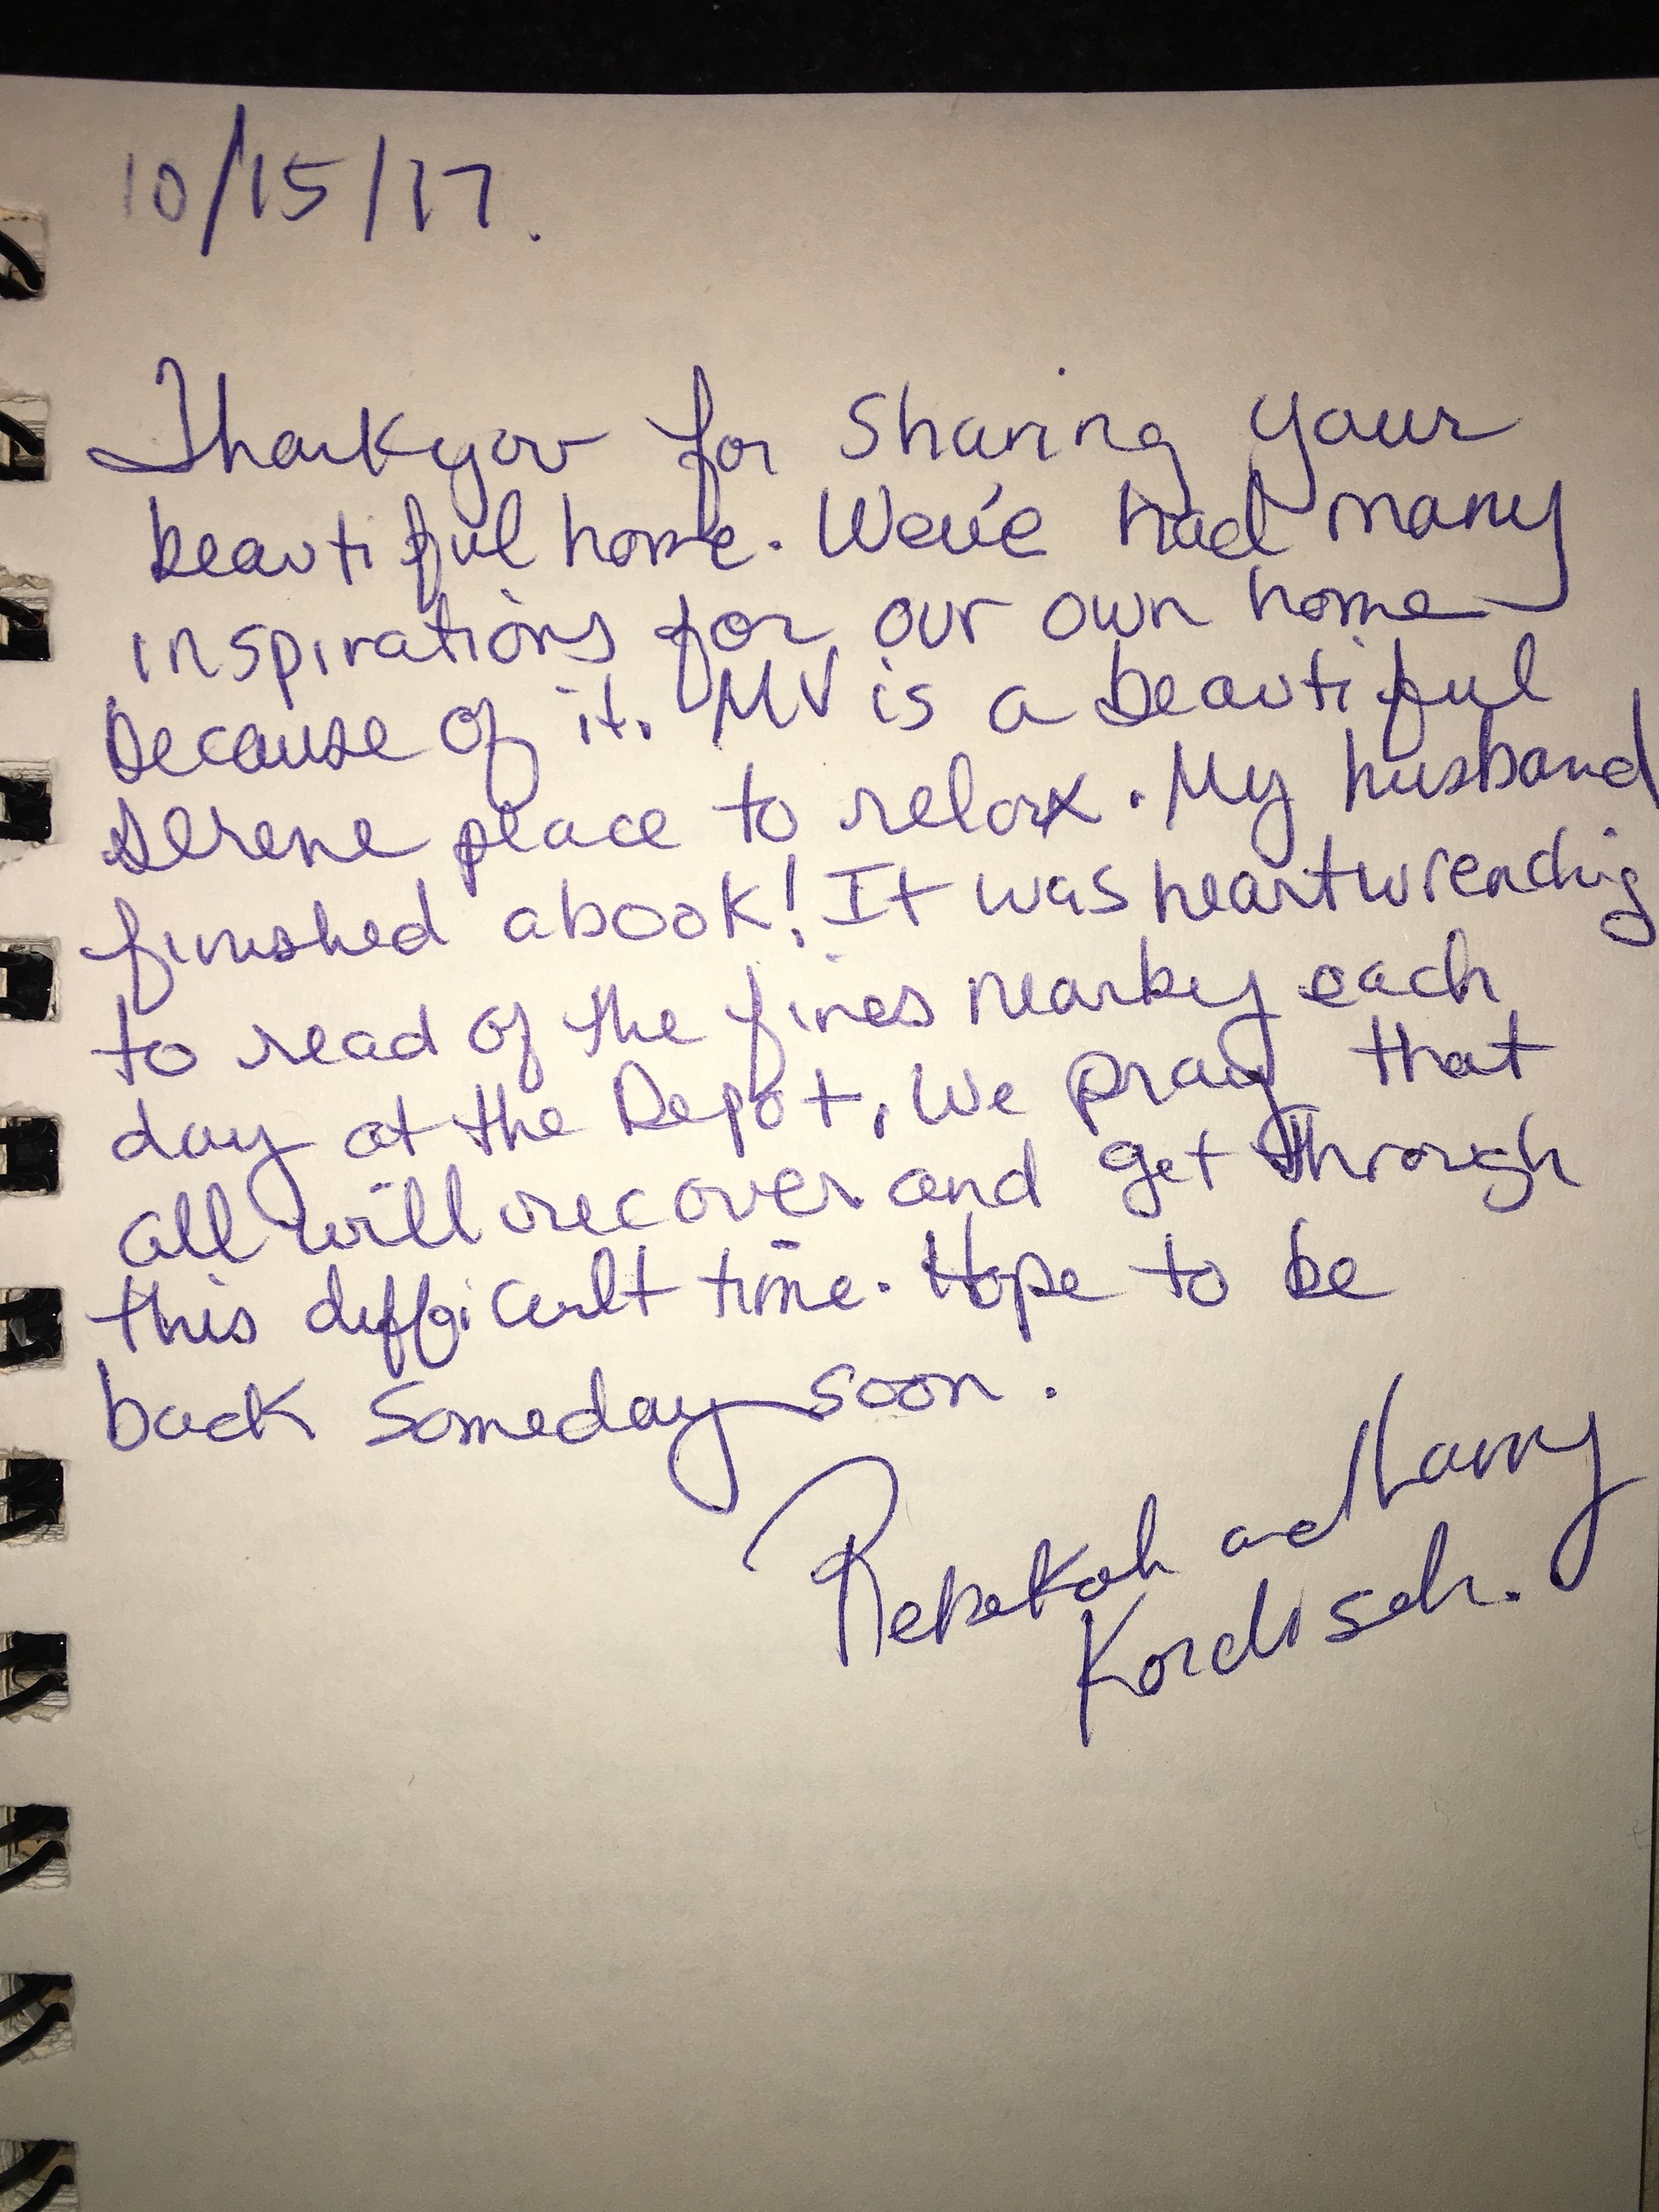 10/15/17.
Thankyou for Sharing your
beautiful home. We've had many
inspirations for our own home
because of it. MV is a beautiful
serene place to relax. My husband
finished a book! It was heartwrending
to read of the fires nearby each
day at the Depot. We pray that
all will recover and get through
this difficult time. Hope to be
back someday soon.
Rebekah and Larry
Kordisch.